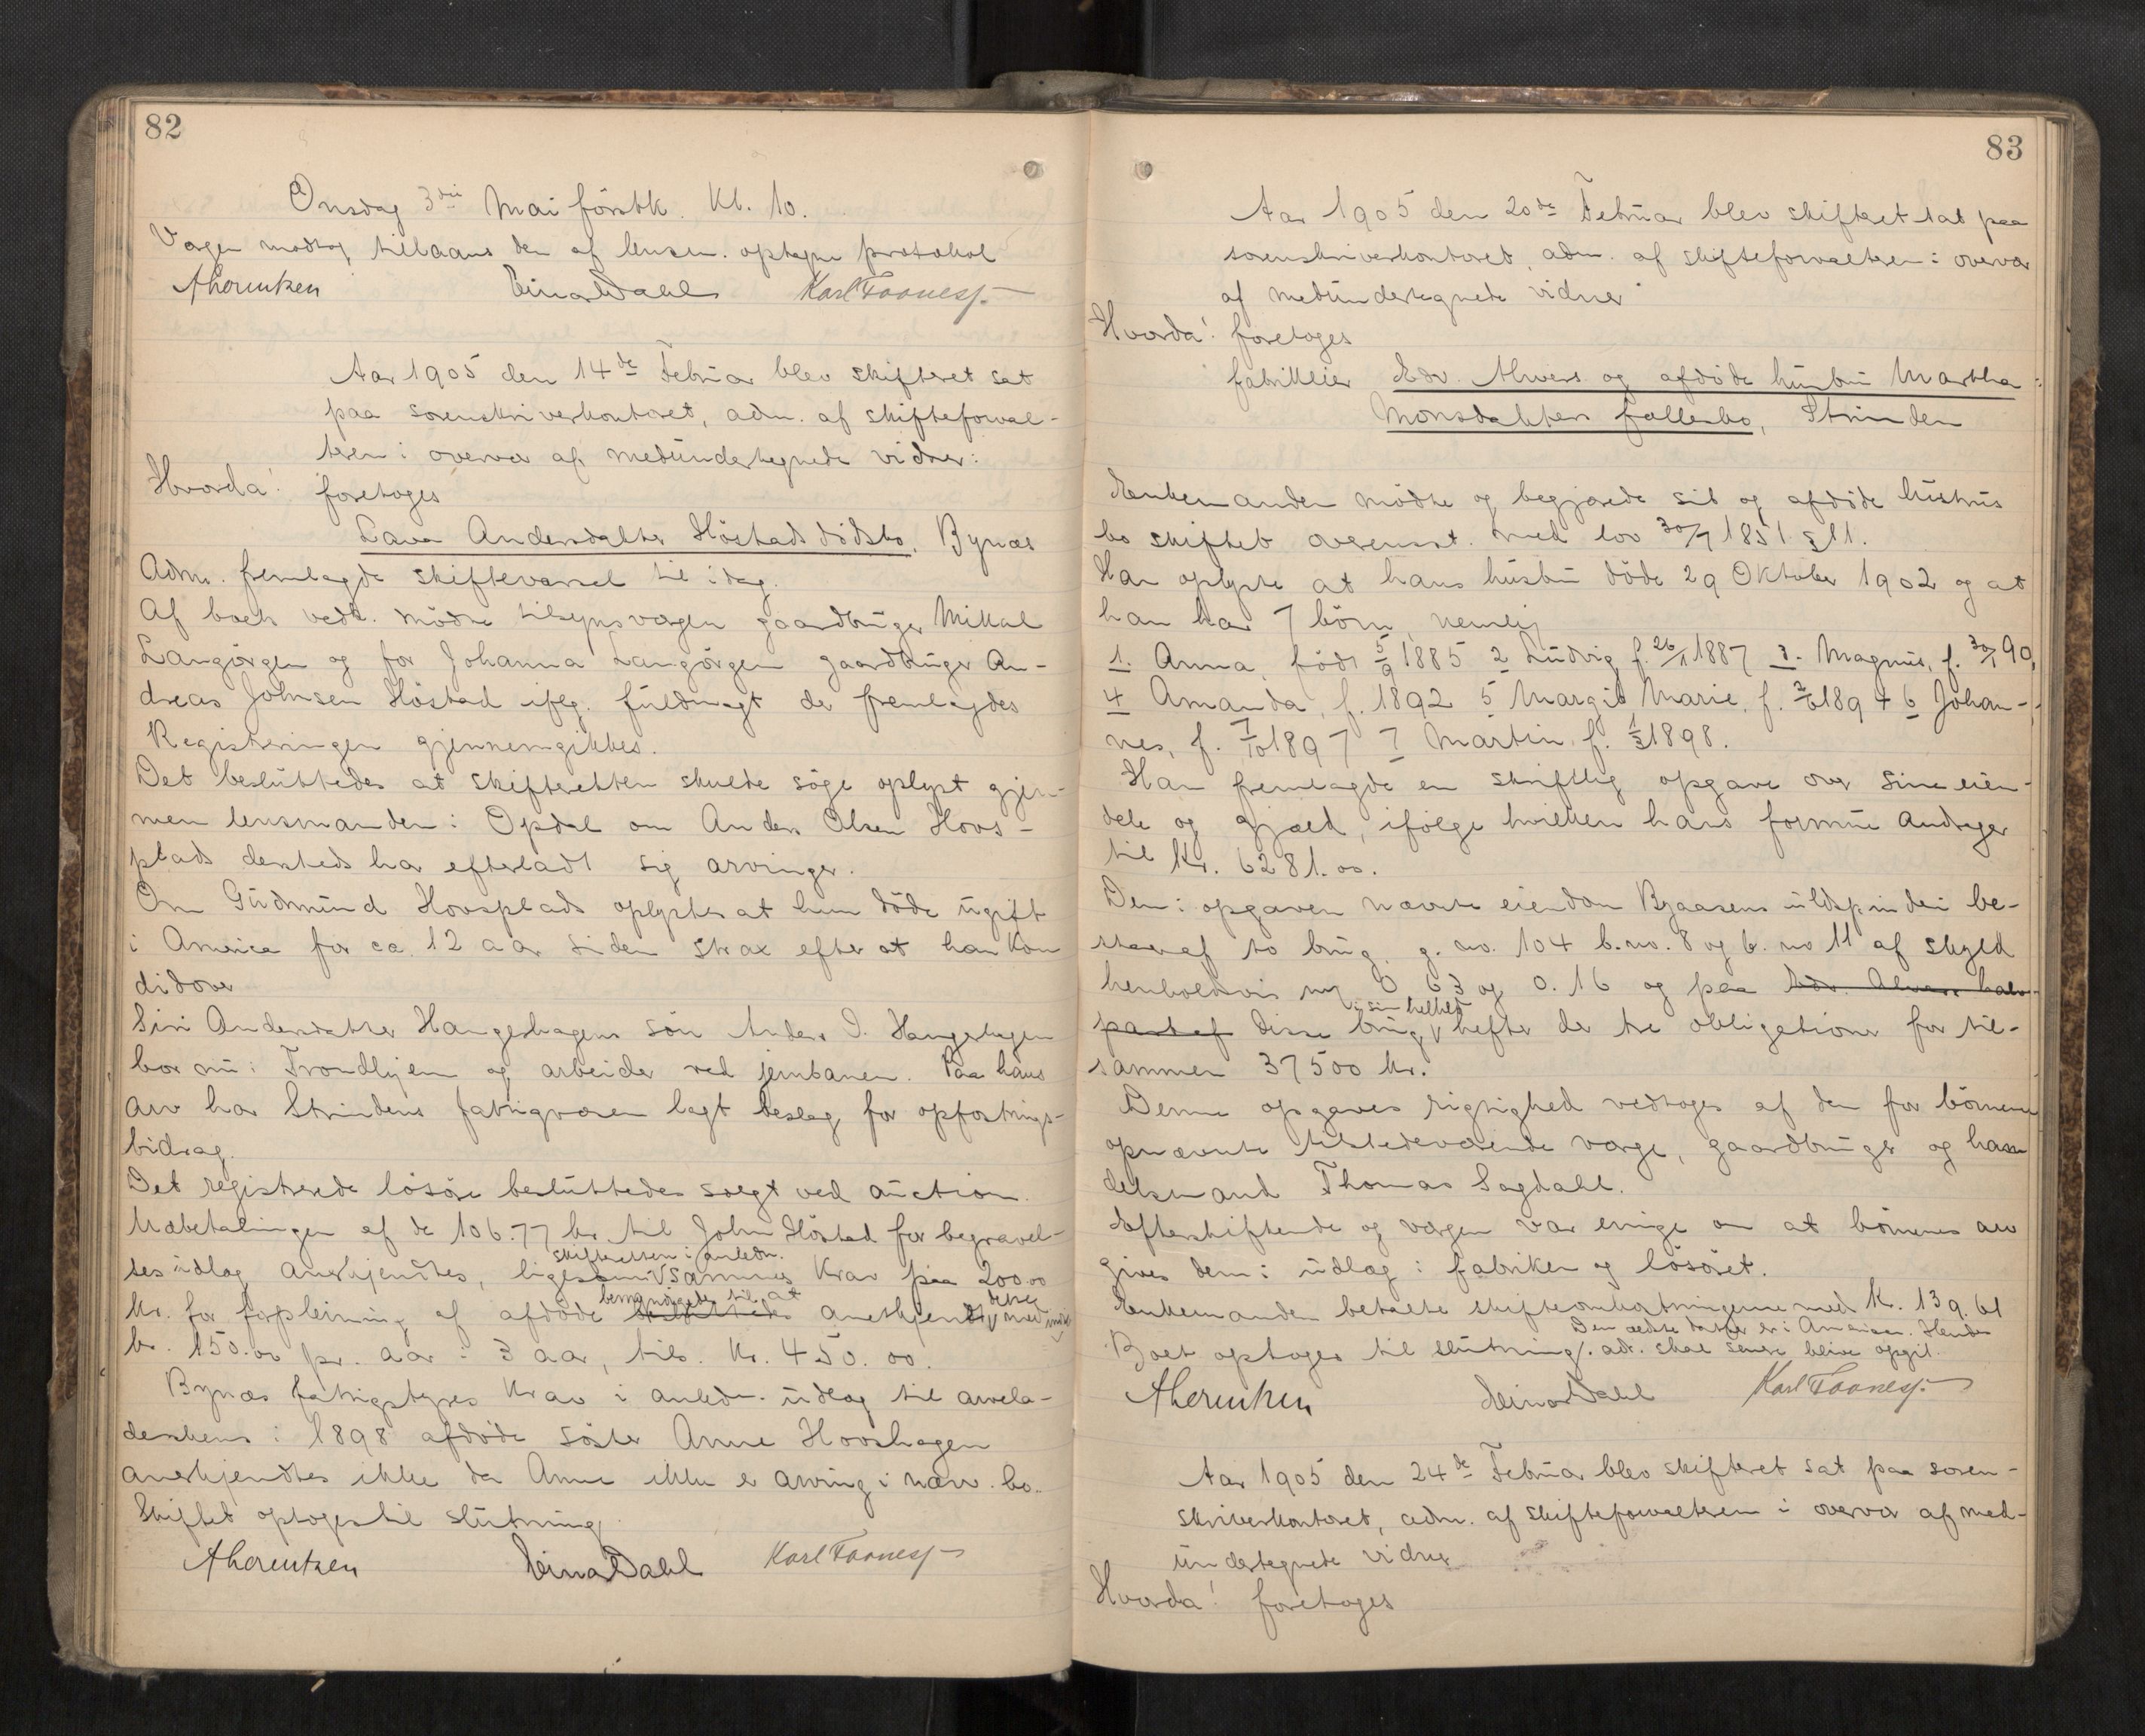 82
Onsdag 3die Mai förstk. Kl. 10.
Vergen modtog tillaans den af lensm. optagne protokol
A Lorentzen Einar Dahl Karl Foones
Aar 1905 den 14de Februar blev skifteret sat
paa sorenskriverkontoret, adm. af skifteforval-
teren i overvær af medundertegnede vidner:
Hvorda! foretoges
Lava Andersdatter Höstads dödsbo, Bynæs
Adm. fremlagde skiftevarsel til idag.
Af boets vedk. mödte tilsynsværgen gaardbruger Mikal
Langörgen og for Johanna Langörgen gaardbruger An-
dreas Johnsen Höstad ifølg. fuldmagt der fremlagdes
Registeringen gjennemgikkes.
Det besluttedes at skifteretten skulde söge oplyst gjen-
nem lensmanden i Opdal om Anders Olsen Hovs-
plads dersteds har efterladt sig arvinger.
Om Gudmund Hovsplads oplystes at hun döde ugift
i America for ca. 12 aar siden strax efter at han kom
didover
Siri Andersdatter Haugeshagens sön Anders I. Haugeshagen
bor nu i Trondhjem og arbeider ved jernbanen. Paa hans
arv har Strindens fattigvæsen lagt beslag for opfostrings-
bidrag.
Det registrerede lösöre besluttedes solgt ved auction.
Udbetalingen af de 106.77 kr. til John Höstad for begravel-
skifteretten i anledn.
sesudlæg anerkjendtes, ligesom sammes krav paa 200.00
bemyndigede til at dette
kr. for forpleining af afdöde besluttedes anerkjendt med indtil
kr. 150.00 pr. aar i 3 aar, tils. kr. 450.00.
Bynæs fattigstyres krav i anledn. udlæg til arvela-
derskens i 1898 afdöde söster Anne Hovshagen
anerkjendtes ikke da Anne ikke er arving i nærv. bo.
Skiftet optoges til slutning.
A Lorentzen Einar Dahl Karl Foones
83
Aar 1905 den 20de Februar blev skifteret sat paa
sorenskriverkontoret, adm. af skifteforvalteren i overvær
af medundertegnede vidner
Hvorda! foretoges
fabrikeier Edv. Alvers og afdöde hustru Martha
Monsdatters fællesbo, Strinden
Enkemanden mödte og begjærede sit og afdöde hustrus
bo skiftet overensst. med lov 30/7 1851 §11.
Han oplyste at hans hustru döde 29 Oktober 1902 og at
han har 7 börn, nemlig
1. Anna, födt 5/9 1885 2 Ludvig f. 26/1 1887 3. Magnus, f. 30/1 90,
4 Amanda, f. 1892 5 Margit Marie, f. 2/6 1894 6 Johan-
nes, f. 7/10 1897 7 Martin f. 1/3 1898.
Han fremlagde en skriftlig opgave over sine eien-
dele og gjæld, ifölge hvilken hans formue andrager
til Kr. 6281.00.
Den i opgaven nævnte eiendom Byaasens uldspinderi be-
staar af to brug, g. no. 104 b.no. 8 og b. no 11 af skyld
henholdsvis m 0 63 og 0.16 og paa Edv. Alvers halv-
i sin helhed
part af disse brug hefter der tre obligationer for til-
sammen 37500 kr.
Denne opgaves rigtighed vedtoges af den for börnene
opnævnte tilstedeværende værge, gaardbruger og han-
delsmand Thomas Sagdahl.
Efterskiftende og værgen var enige om at börnenes arv
gives dem i udlæg i fabriken og lösöret.
Enkemanden betalte skifteomkostningerne med K. 139.61
Den ældste datter er i American. Hendes
Boet optoges til slutning. adr. skal senere blive opgit.
A Lorentzen Einar Dahl Karl Foones
Aar 1905 den 24de Februar blev skifteret sat paa soren-
skriverkontoret, adm. af skifteforvalteren i overvær af med-
undertegnede vidner
Hvorda! foretoges